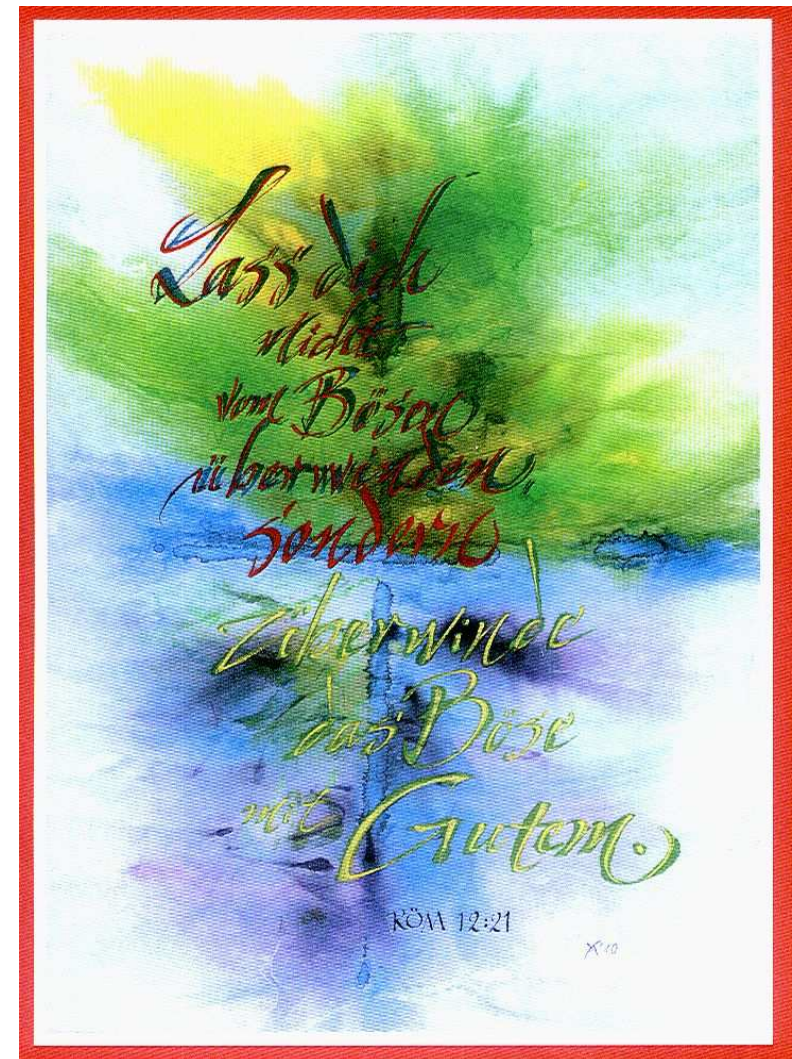 Lass dich
nicht
vom Bösen
überwinden,
sondern
überwinde
das Böse
mit Gutem.
RÖM 12:21